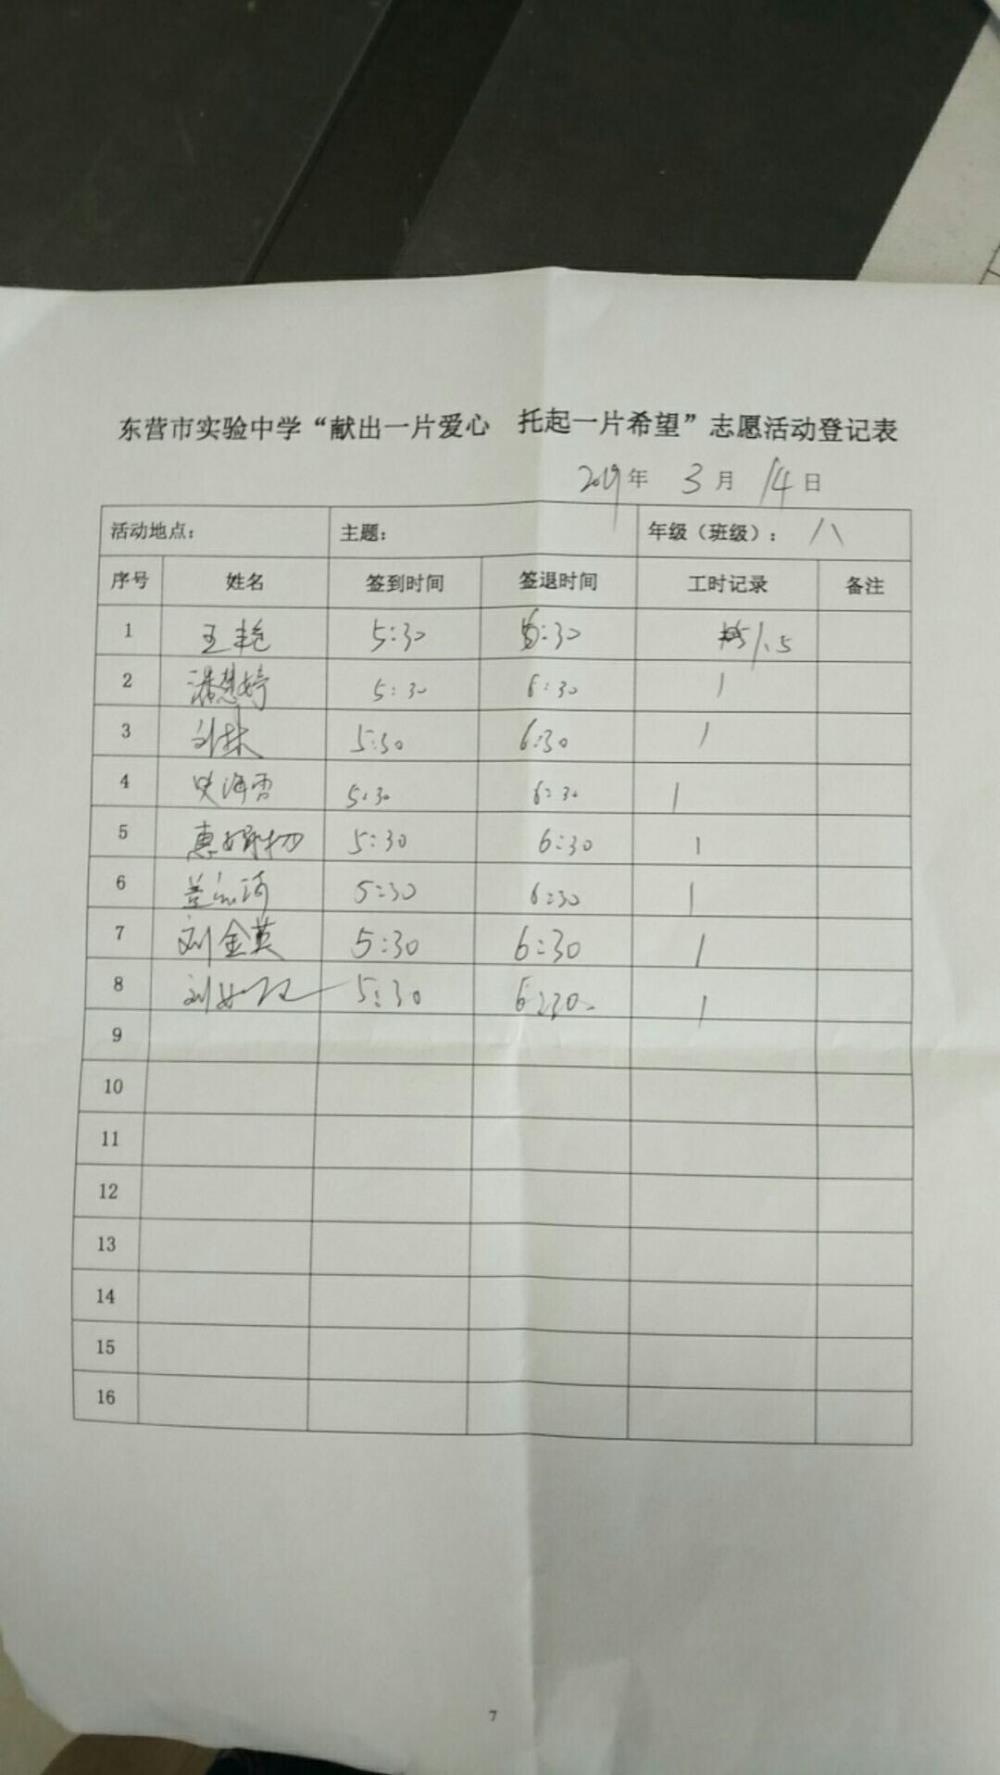 东营市实验中学“献出一片爱心 托起一片希望”志愿活动登记表
2019年 3月 14日
活动地点： 主题： 年级（班级）： 八
序号 姓名 签到时间 签退时间 工时记录 备注
1 王艳 5:30 6:30 1.5
2 潘慧婷 5:30 6:30 1
3 刘林 5:30 6:30 1
4 5:30 6:30 1
5 5:30 6:30 1
6 5:30 6:30 1
7 刘金英 5:30 6:30 1
8 刘 5:30 6:30 1
9
10
11
12
13
14
15
16
7